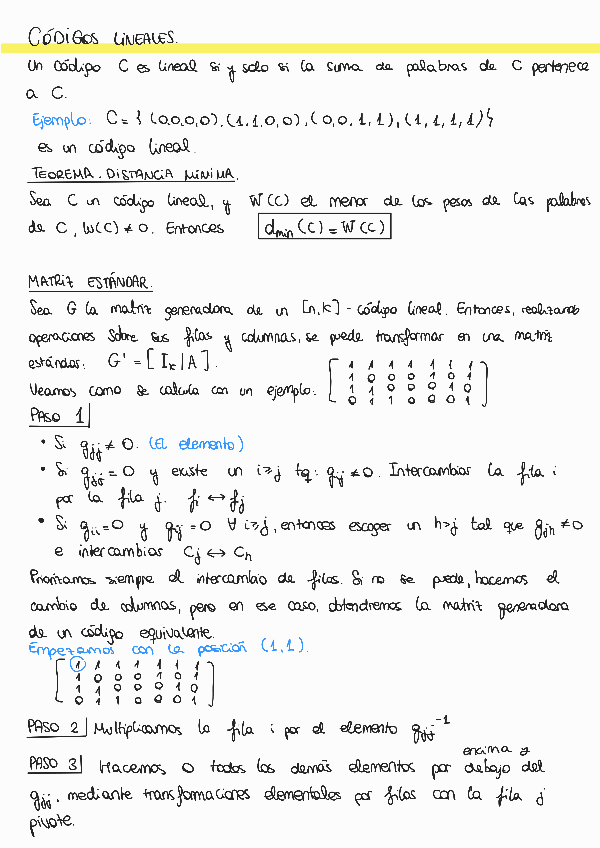 CÓDIGOS LINEALES.
Un código C es lineal si y solo si la suma de palabras de C pertenece
a C.
Ejemplo: C = { (0,0,0,0), (1,1,0,0), (0,0,1,1), (1,1,1,1) }
es un código lineal.
TEOREMA. DISTANCIA MÍNIMA.
Sea C un código lineal, y W(C) el menor de los pesos de las palabras
de C, W(C) ≠ 0. Entonces d_min (C) = W(C)
MATRIZ ESTÁNDAR.
Sea G la matriz generadora de un [n,k] - código lineal. Entonces, realizando
operaciones sobre sus filas y columnas, se puede transformar en una matriz
estándar. G' = [ I_k | A ].
Veamos como se calcula con un ejemplo:
1 1 1 1 1 1 1
1 0 0 0 1 0 1
1 1 0 0 0 1 0
0 1 1 0 0 0 1
PASO 1
• Si g_jj ≠ 0. (El elemento)
• Si g_jj = 0 y existe un i≥j tq: g_ij ≠ 0. Intercambiar la fila i
por la fila j. f_i ↔ f_j
• Si g_ii = 0 y g_ij = 0 ∀ i≥j, entonces escoger un h>j tal que g_jh ≠ 0
e intercambias C_j ↔ C_h
Priorizamos siempre el intercambio de filas. Si no se puede, hacemos el
cambio de columnas, pero en ese caso, obtendremos la matriz generadora
de un código equivalente.
Empezamos con la posición (1,1).
1 1 1 1 1 1 1
1 0 0 0 1 0 1
1 1 0 0 0 1 0
0 1 1 0 0 0 1
PASO 2 Multiplicamos la fila i por el elemento g_jj^-1
encima y
PASO 3 Hacemos 0 todos los demás elementos por debajo del
g_jj, mediante transformaciones elementales por filas con la fila j
pivote.